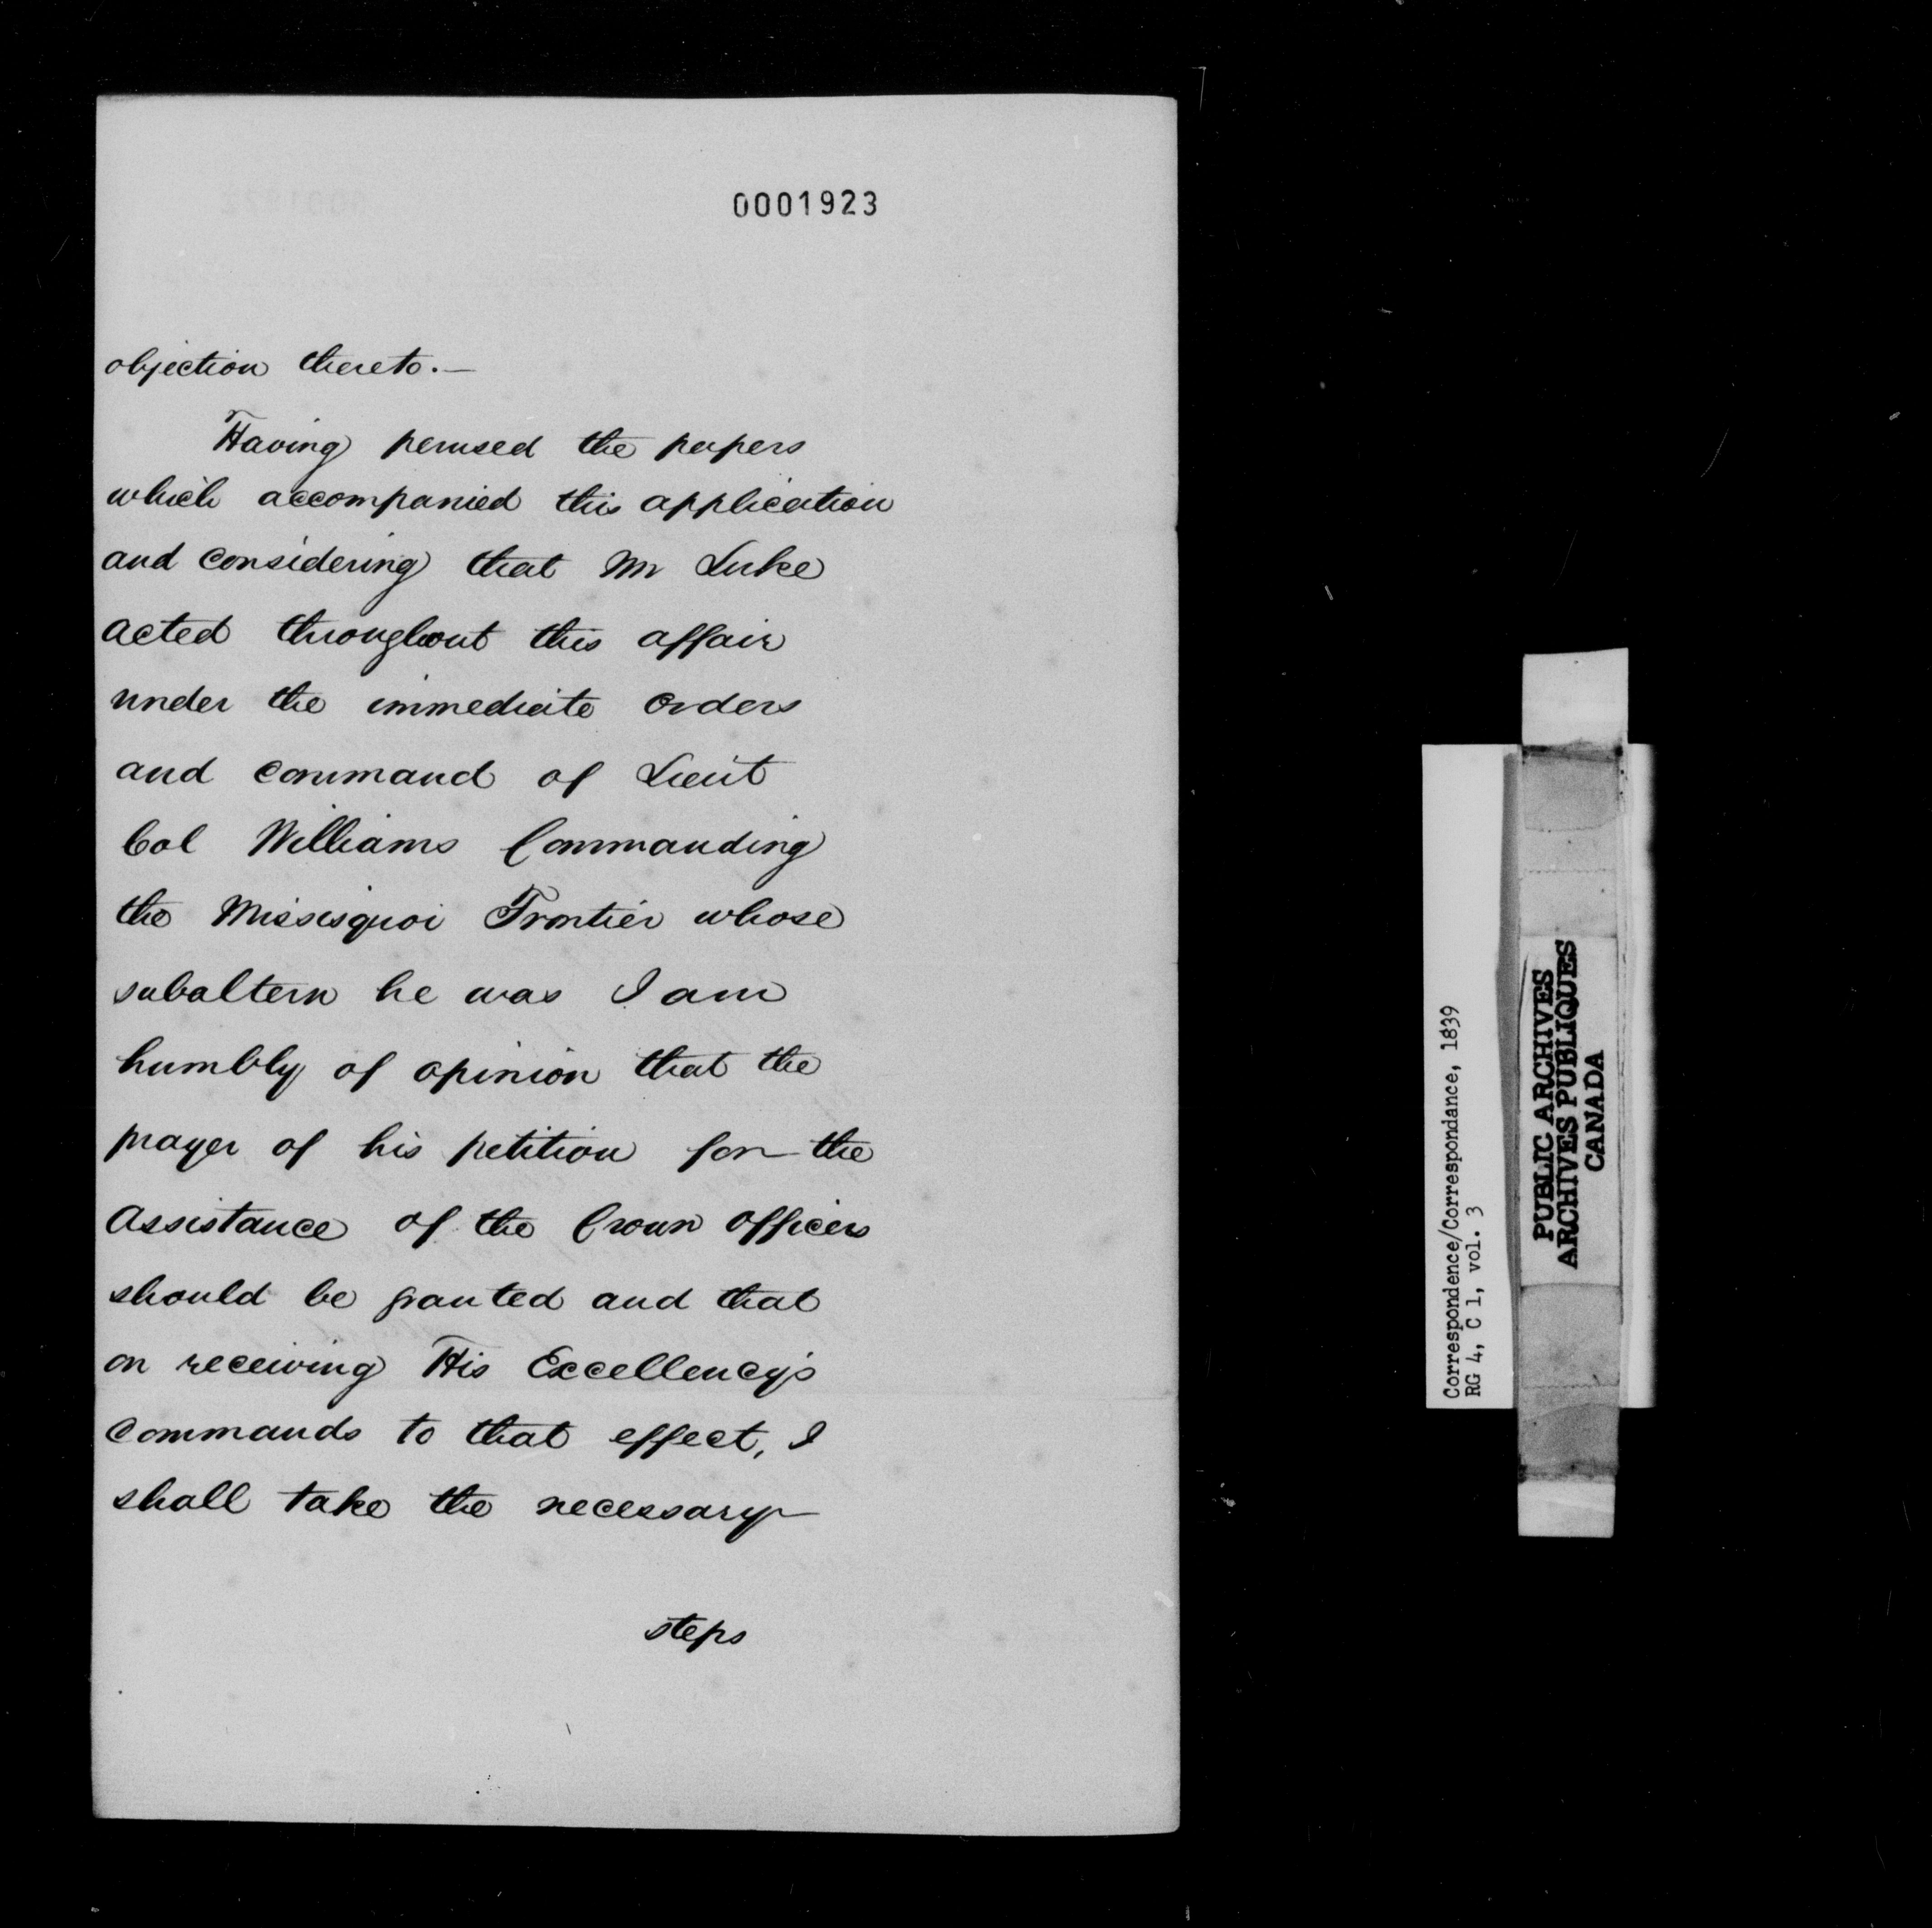 0001923
objection thereto.—
Having perused the papers
which accompanied this application
and considering that Mr Luke
acted throughout this affair
under the immediate orders
and command of Lieut
Col Williams Commanding
the Missisquoi Frontier whose
subaltern he was I am
humbly of opinion that the
prayer of his petition for the
assistance of the Crown officers
should be granted and that
on receiving His Excellency's
commands to that effect, I
shall take the necessary
steps
Correspondence/Correspondance, 1839
RG 4, C 1, vol. 3
PUBLIC ARCHIVES
ARCHIVES PUBLIQUES
CANADA